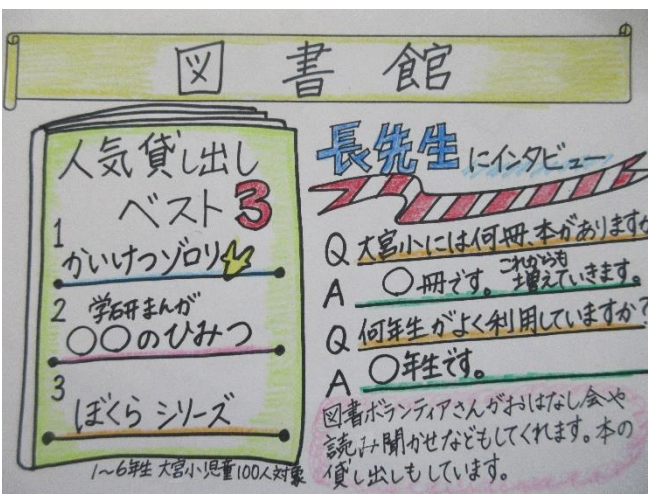 図書館
人気貸し出し
ベスト3
1
かいけつゾロリ
2 学研まんが
○○のひみつ
3
ぼくらシリーズ
1~6年生 大宮小児童100人対象
長先生にインタビュー
Q 大宮小には何冊、本がありますか
A ○冊です。これからも
増えていきます。
Q 何年生がよく利用していますか?
A ○年生です。
図書ボランティアさんがおはなし会や
読み聞かせなどもしてくれます。本の
貸し出しもしています。